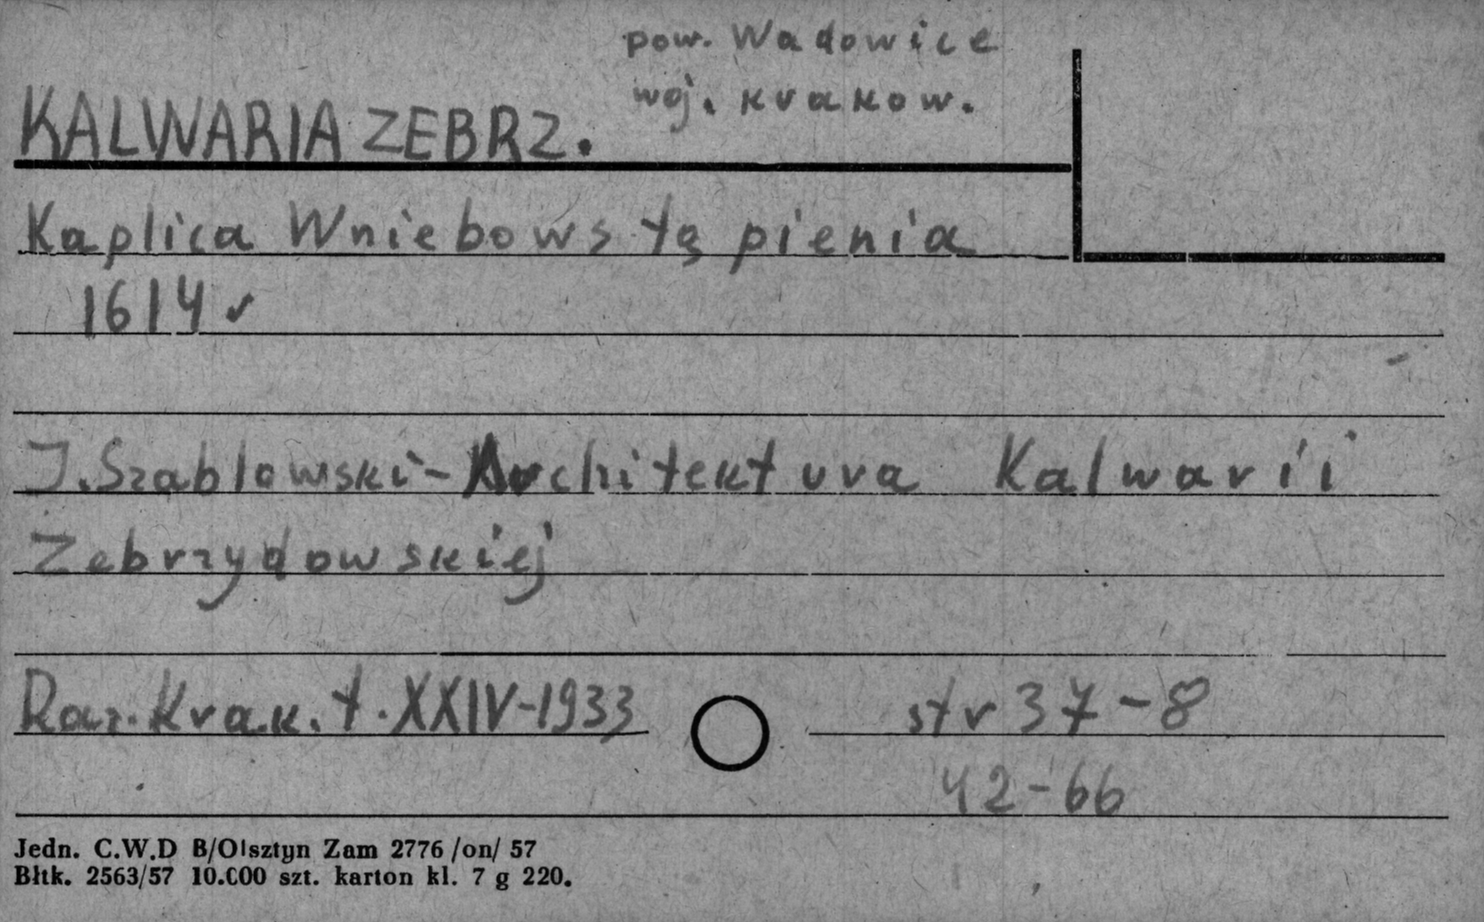 pow. Wadowice
woj. krakow.
KALWARIA ZEBRZ.
Kaplica Wniebowstąpienia
1614 ✓
J. Szablowski - Architektura Kalwarii
Zebrzydowskiej
Roz. Krak. t. XXIV-1933 str 37-8
42-66
Jedn. C.W.D B/Olsztyn Zam 2776 /on/ 57
Błtk. 2563/57 10.000 szt. karton kl. 7 g 220.